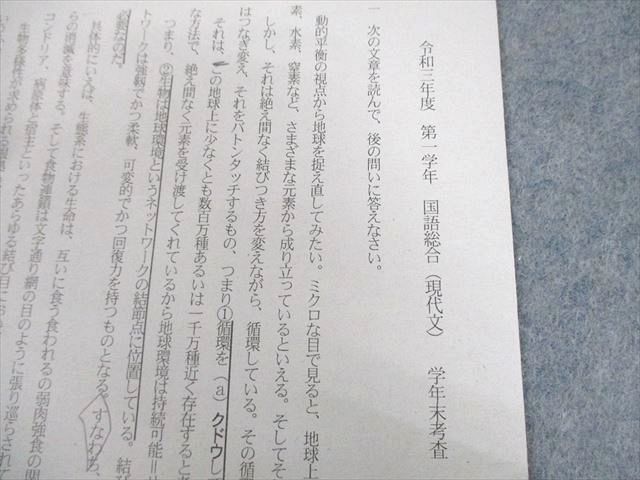 令和三年度　第一学年　国語総合（現代文）　学年末考査
一　次の文章を読んで、後の問いに答えなさい。
動的平衡の視点から地球を捉え直してみたい。ミクロな目で見ると、地球上
素、水素、窒素など、さまざまな元素から成り立っているといえる。そしてそ
しかし、それは絶え間なく結びつき方を変えながら、循環している。その循
はつなぎ変え、それをバトンタッチするもの、つまり①循環を（a）クドウし
それは、この地球上に少なくとも数百万種あるいは一千万種近く存在すると
な方法で、絶え間なく元素を受け渡してくれているから地球環境は持続可能＝
つまり、②生物は地球環境というネットワークの結節点に位置している。結び
トワークは強靱でかつ柔軟、可変的でかつ回復力を持つものとなる。すなわち、
必要なのだ。
具体的にいえば、生態系における生命は、互いに食う食われるの弱肉強食の関
らの消滅を意味する。そして食物連鎖は文字通り網の目のように張り巡らされて
コンドリア、病原体と宿主といったあらゆる結び目に
生物多様性が求められる